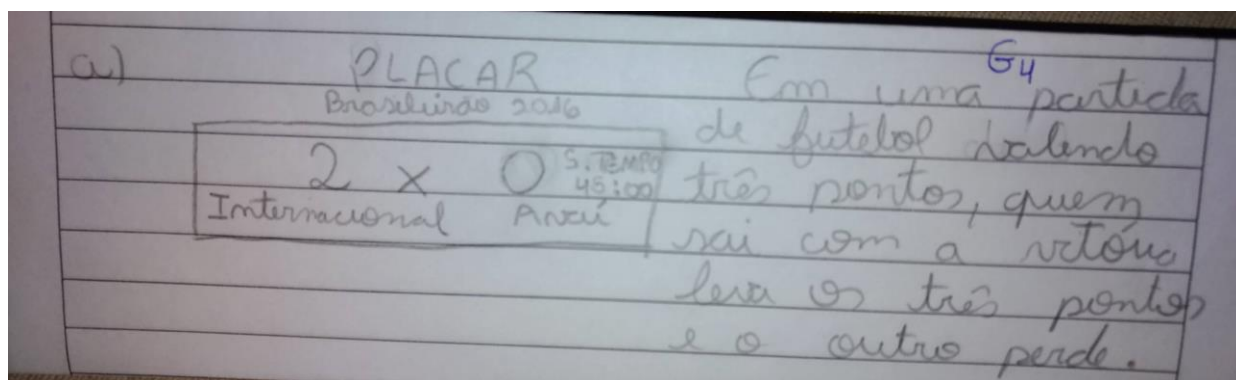 a)
PLACAR
Brasileirão 2016
2 x 0 S. TEMPO
45:00
Internacional Avaí
G4
Em uma partida
de futebol valendo
três pontos, quem
sai com a vitória
leva os três pontos
e o outro perde.